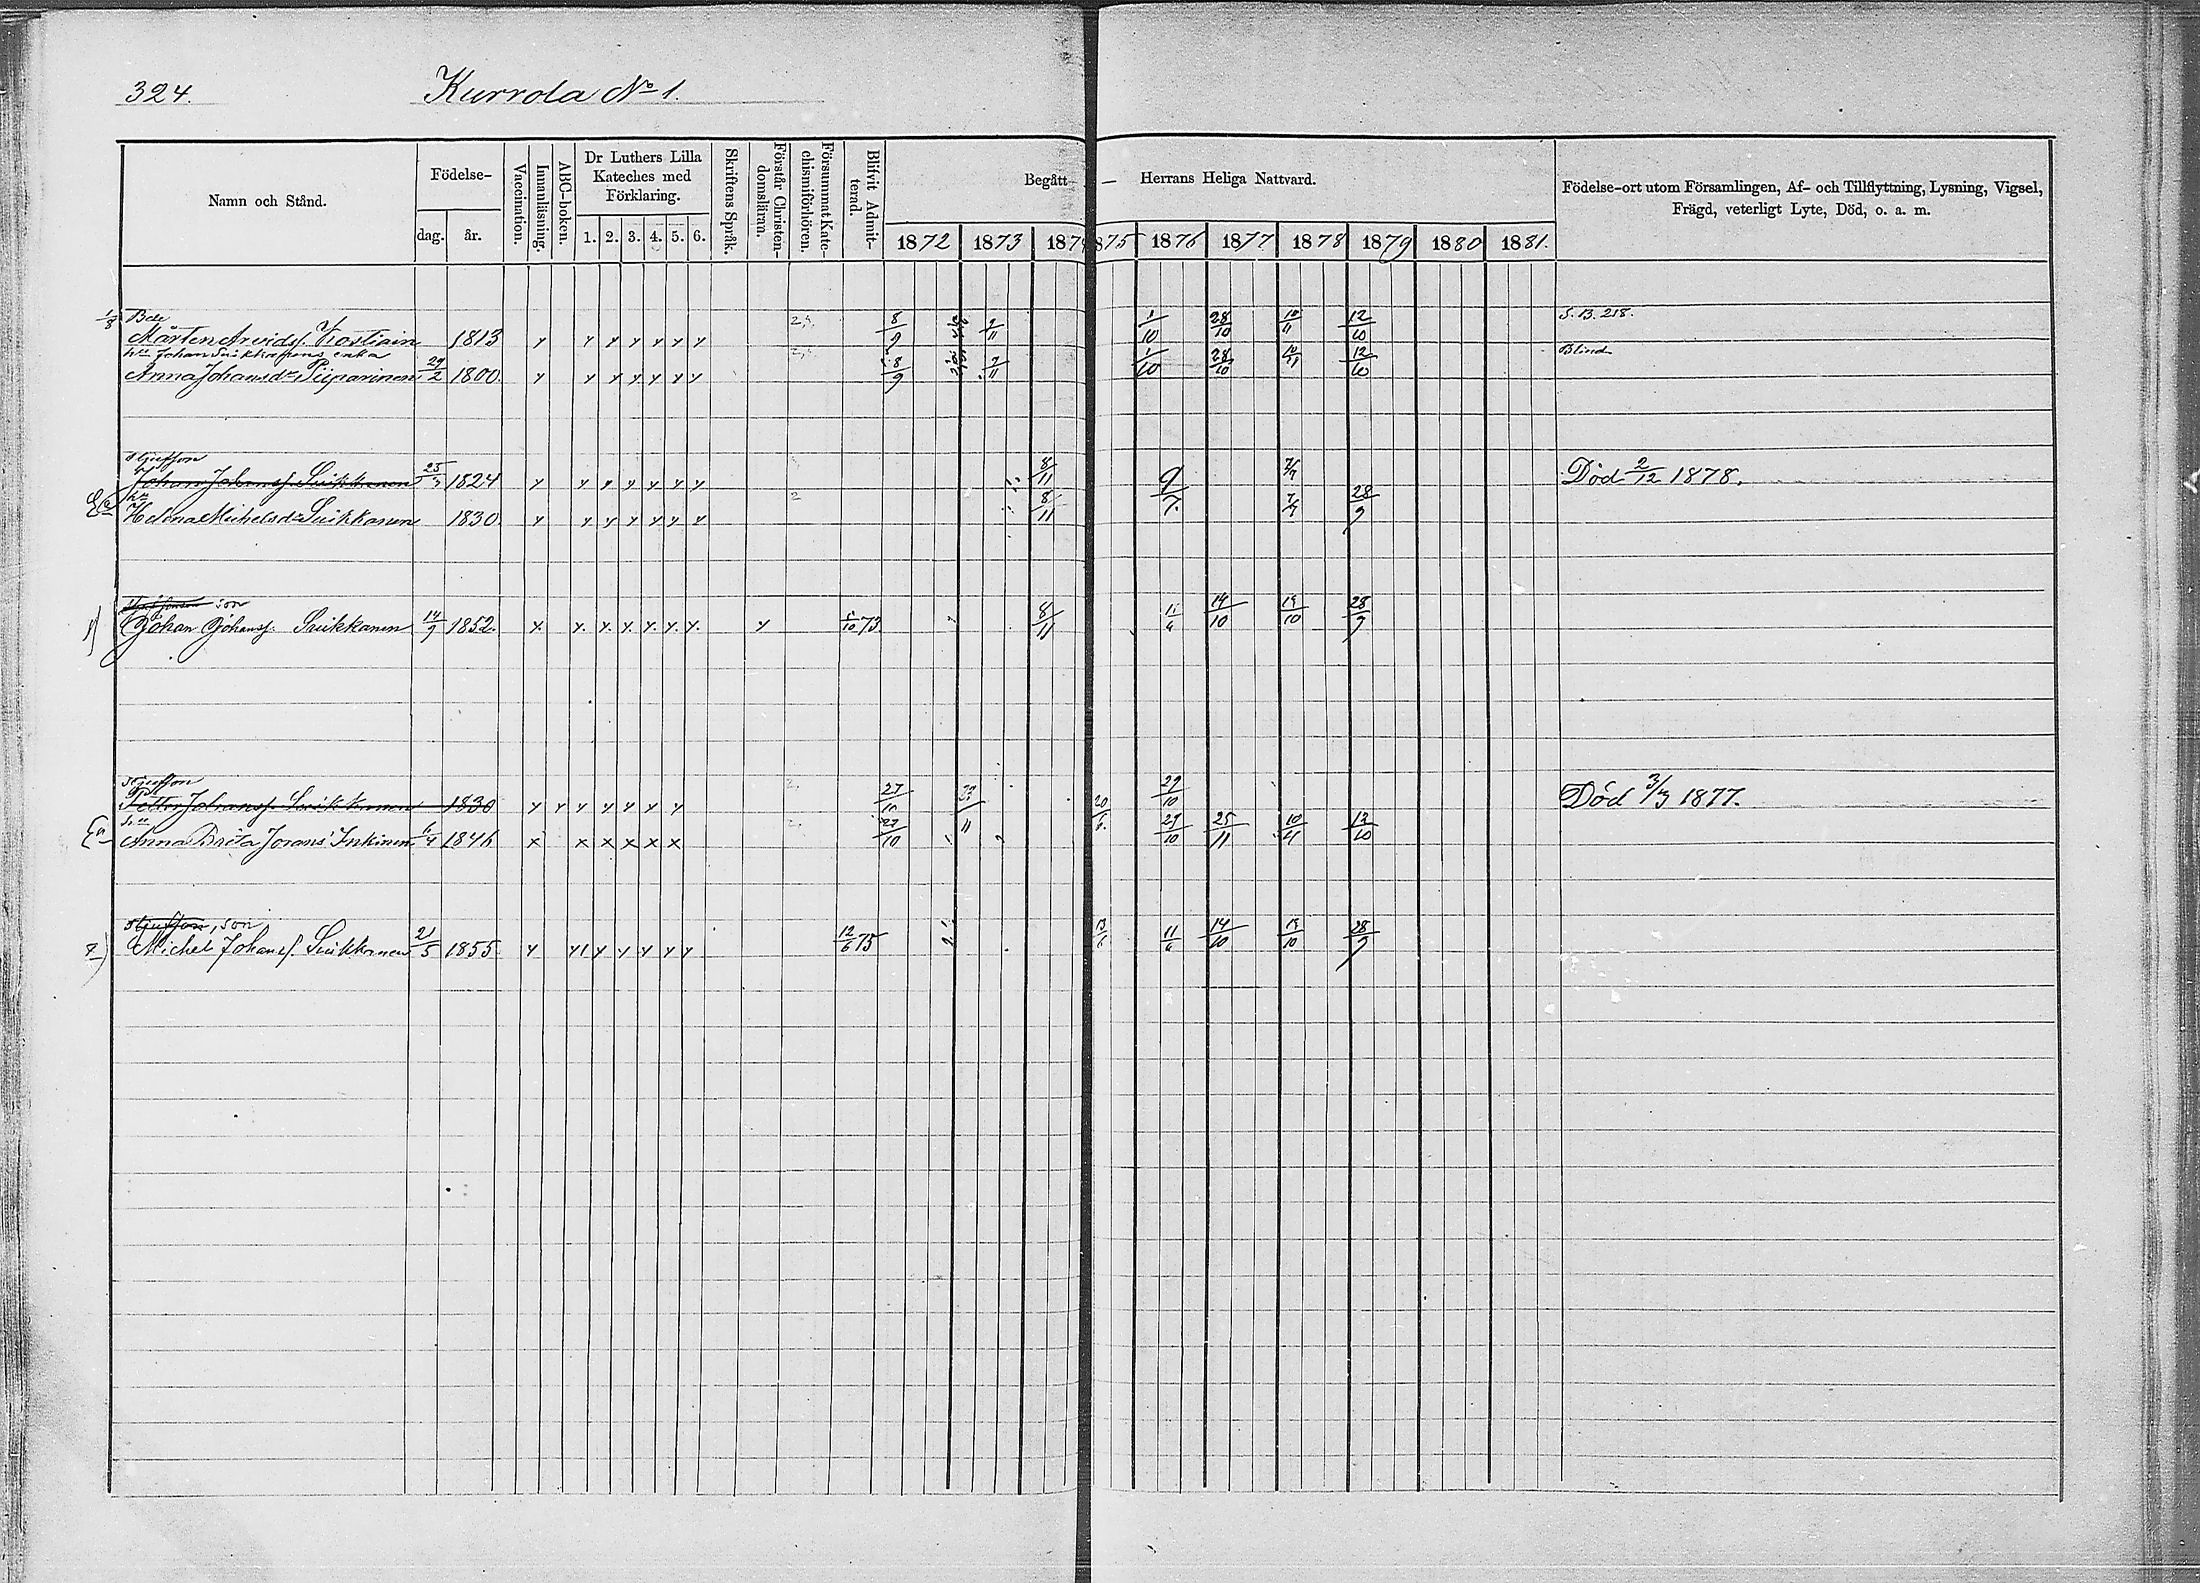 324. Kurrola No 1.
Namn och Stånd.
Födelse-
dag. år.
Vaccination.
Innanläsning.
ABC-boken.
Dr Luthers Lilla
Kateches med
Förklaring.
1. 2. 3. 4. 5. 6.
Skriftens Språk.
Förstår Christen-
domsläran.
Försummat Kate-
chismiförhören.
Blifvit Admit-
terad.
Begått — Herrans Heliga Nattvard.
1872 1873 187 875 1876 1877 1878 1879 1880 1881.
Födelse-ort utom Församlingen, Af- och Tillflyttning, Lysning, Vigsel,
Frägd, veterligt Lyte, Död, o. a. m.
S. B. 218.
Mårten Arvidsf. 1813 y y y y y y y 8/9 9/11 1/10 28/10 10/11 12/10
enka Blind
Anna Johansdr Piiparinen 29/2 1800. y y y y y y y 8/9 9/11 1/10 28/10 12/10
Johan Johansf. Suikkanen 1824 y y y y y y y 8/11 9/7 7/7 Död 2/12 1878.
hu
Helena Michelsdr Suikkanen 1830. y y y y y y y 8/11 7/7 28/9
son
Johan Johansf. Suikkanen 14/9 1852. y y y y y y y y 73 8/11 11/6 14/10 14/10 28/9
Petter Johansf. Suikkanen 1830 y y y y y y y 27/10 29/10 Död 3/3 1877.
hu
Anna Brita Jorans Inkinen 1846 x x x x x x 27/10 29/10 25/11 10/11 12/10
son
Michel Johansf. Suikkanen 21/5 1855. y y 1 y y y y y 12/6 75 13/6 11/6 14/10 14/10 28/9